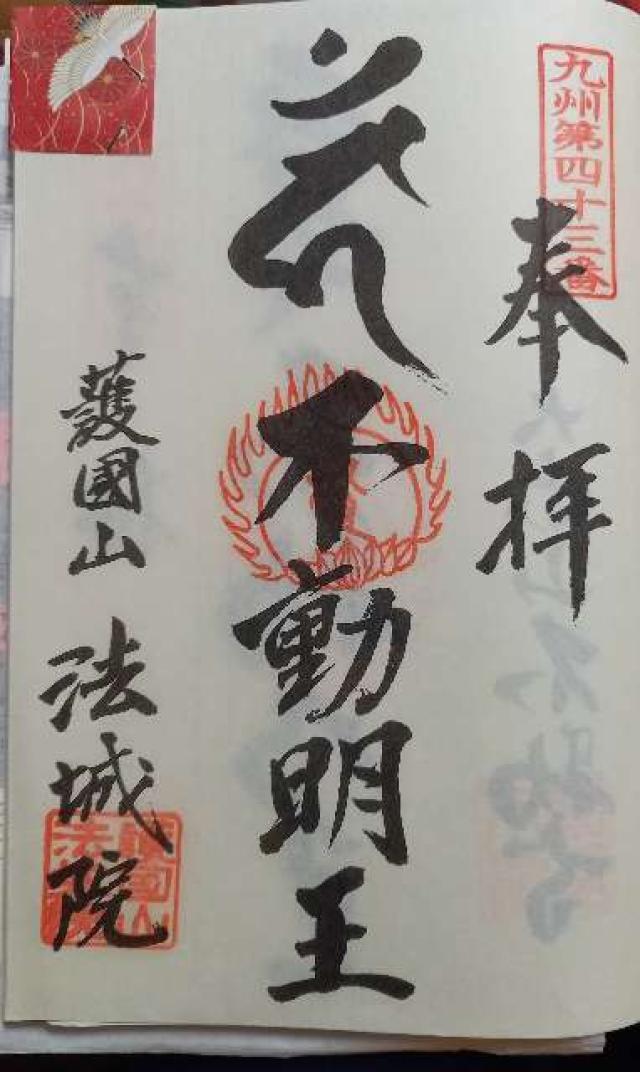 九州第四十三番
奉拝
不動明王
護國山 法城院